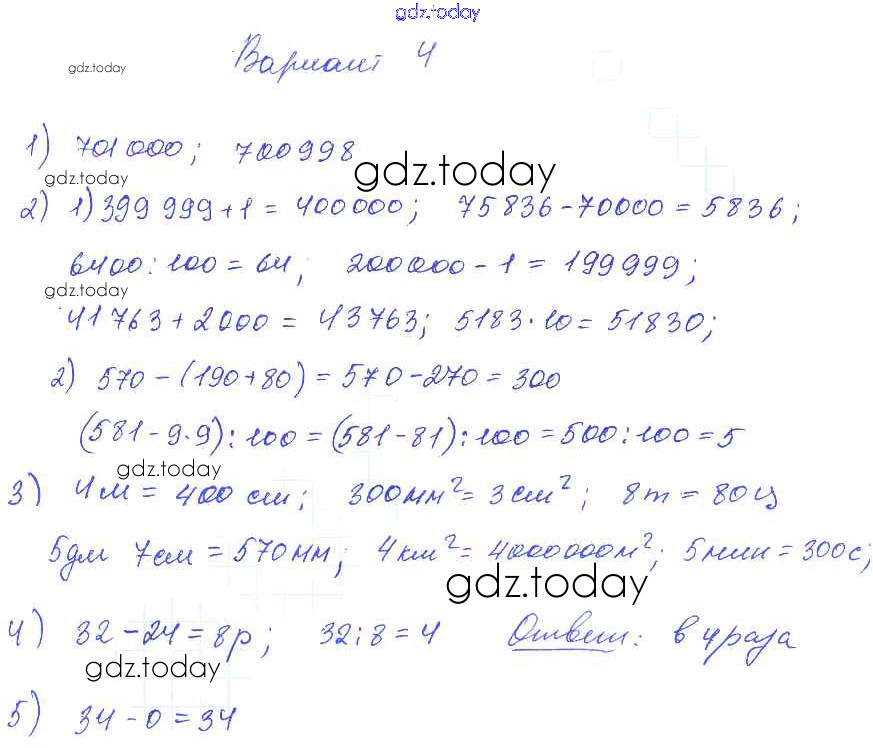 gdz.today
gdz.today
Вариант 4
1) 701000; 700998
gdz.today
gdz.today
2) 1) 399 999 + 1 = 400000; 75836 - 70000 = 5836;
6400 : 100 = 64; 200000 - 1 = 199999;
gdz.today
41763 + 2000 = 43763; 5183 · 10 = 51830;
2) 570 - (190 + 80) = 570 - 270 = 300
(581 - 9 · 9) : 100 = (581 - 81) : 100 = 500 : 100 = 5
gdz.today
3) 4 м = 400 см; 300 мм² = 3 см²; 8 т = 80 ц
5 дм 7 см = 570 мм; 4 км² = 4000000 м²; 5 мин = 300 с;
gdz.today
4) 32 - 24 = 8 р; 32 : 8 = 4 Ответ: в 4 раза
gdz.today
5) 34 - 0 = 34